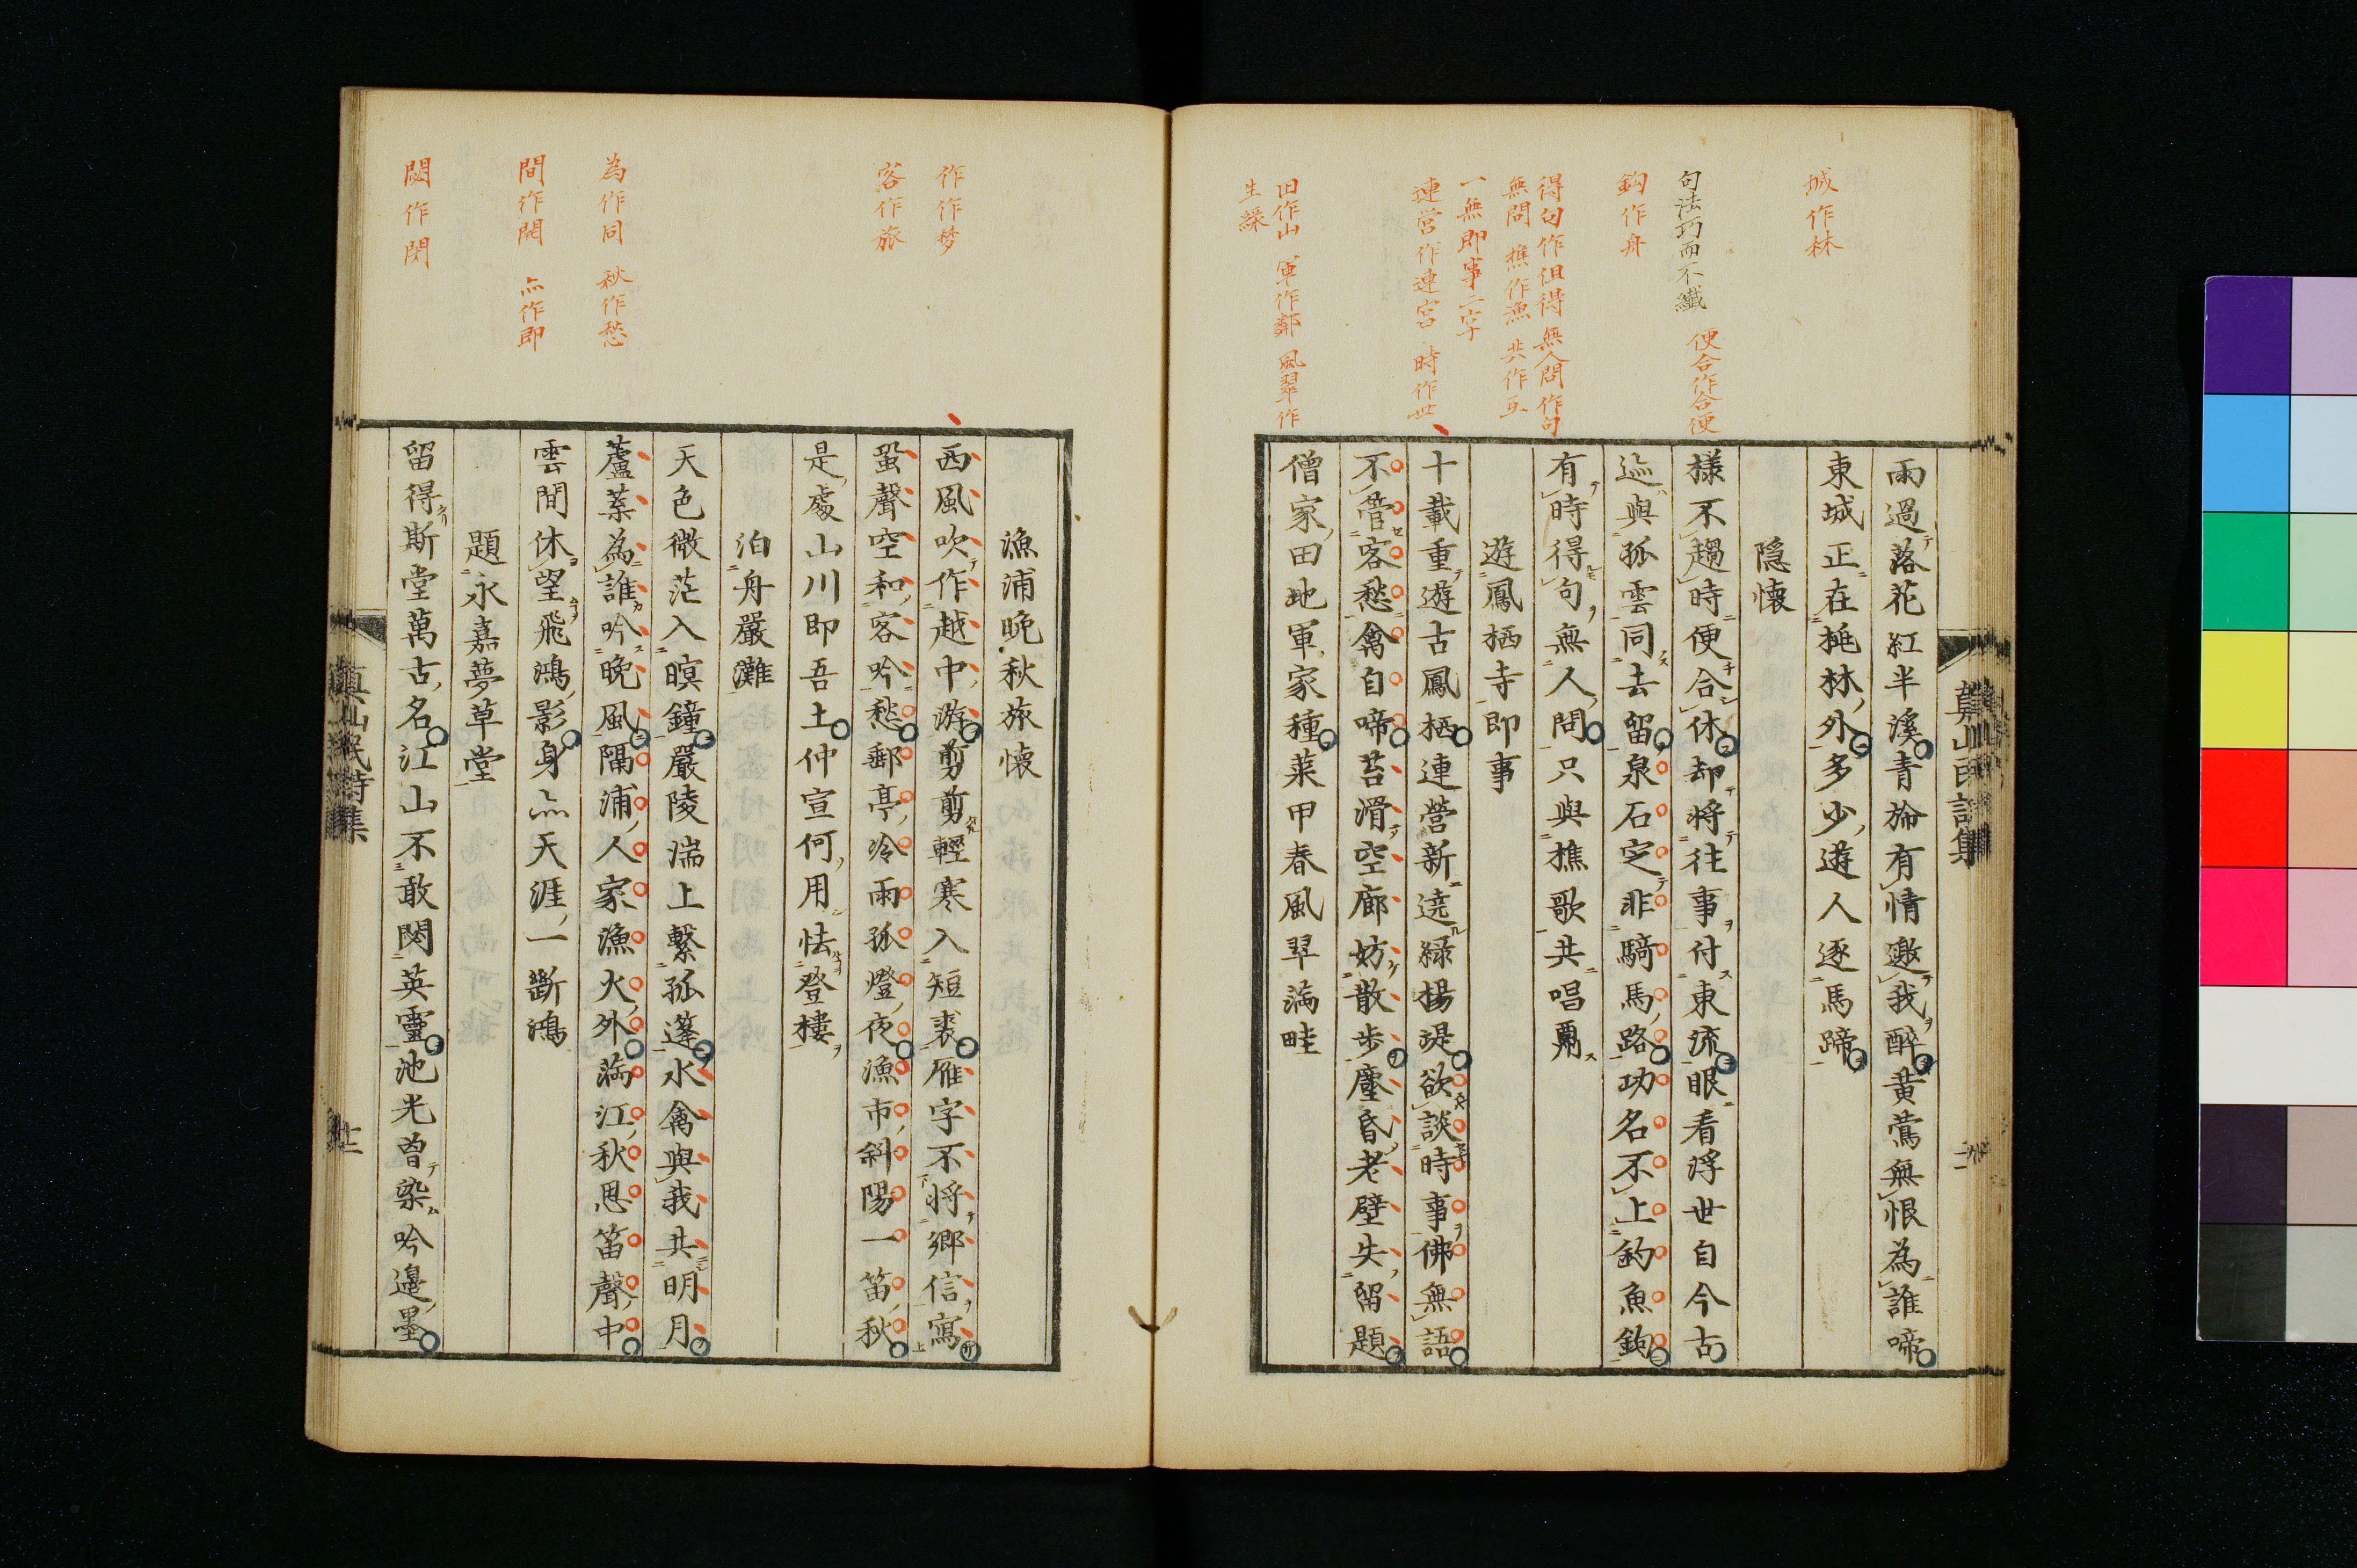 城作林
句法巧而不纖 便合作合便
鈎作舟
得句作但得 無人問作句
無問 樵作漁 共作互
一無即事二字
連営作連宮 時作世
田作山 軍作鄰 風翠作
生緑
雨過落花紅半溪青旆有情邀我醉黄鶯無恨為誰啼
東城正在桃林外多少遊人逐馬蹄
隠懐
様不趨時便合休却将往事付東流眼看浮世自今古
迹與孤雲同去留泉石定非騎馬路功名不上釣魚鈎
有時得句無人問只與樵歌共唱酬
遊鳳栖寺即事
十載重遊古鳳栖連營新遶緑楊堤欲談時事佛無語
不管客愁禽自啼苔滑空廊妨散步塵昏老壁失留題
僧家田地軍家種菜甲春風翠満畦
真山民詩集
作作梦
客作旅
為作同 秋作愁
間作閑 亦作即
閟作閉
漁浦晩秋旅懐
西風吹作越中游剪剪輕寒入短裘雁字不将郷信寫
蛩聲空和客吟愁郵亭冷雨孤燈夜漁市斜陽一笛秋
是處山川即吾土仲宣何用怯登樓
泊舟嚴灘
天色微茫入暝鐘嚴陵湍上繫孤篷水禽與我共明月
蘆葉為誰吟晩風隔浦人家漁火外満江秋思笛聲中
雲間休望飛鴻影身亦天涯一斷鴻
題永嘉夢草堂
留得斯堂萬古名江山不敢閟英靈池光曽染吟邊墨
真山民詩集